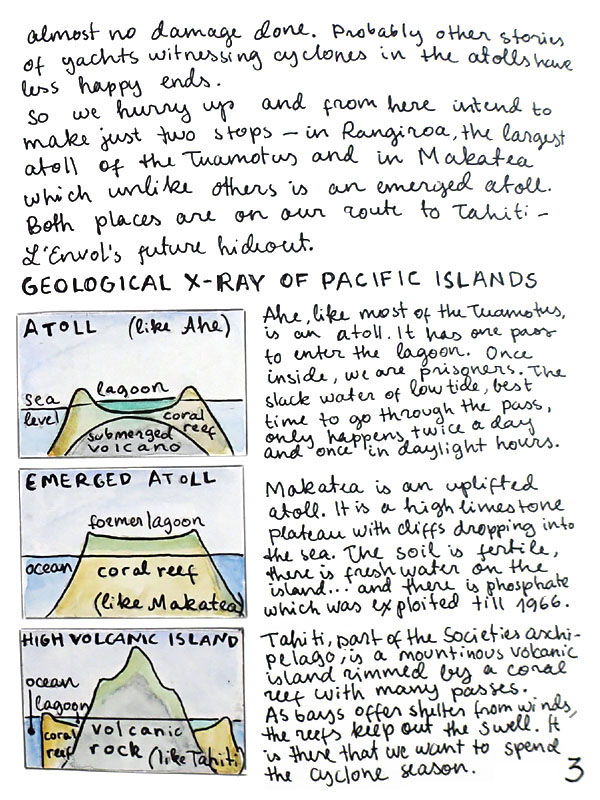 almost no damage done. Probably other stories
of yachts witnessing cyclones in the atolls have
less happy ends.
So we hurry up and from here intend to
make just two stops – in Rangiroa, the largest
atoll of the Tuamotus and in Makatea
which unlike others is an emerged atoll.
Both places are on our route to Tahiti –
L'Envol's future hideout.
GEOLOGICAL X-RAY OF PACIFIC ISLANDS
ATOLL (like Ahe)
lagoon
sea
level
coral
reef
submerged
volcano
Ahe, like most of the Tuamotus,
is an atoll. It has one pass
to enter the lagoon. Once
inside, we are prisoners. The
slack water of low tide, best
time to go through the pass,
only happens twice a day
and once in daylight hours.
EMERGED ATOLL
former lagoon
ocean
coral reef
(like Makatea)
Makatea is an uplifted
atoll. It is a high limestone
plateau with cliffs dropping into
the sea. The soil is fertile,
there is fresh water on the
island... and there is phosphate
which was exploited till 1966.
HIGH VOLCANIC ISLAND
ocean
lagoon
coral
reef
volcanic
rock
(like Tahiti)
Tahiti, part of the Societies archi-
pelago, is a mountinous volcanic
island rimmed by a coral
reef with many passes.
As bays offer shelter from winds,
the reefs keep out the swell. It
is there that we want to spend
the cyclone season.
3